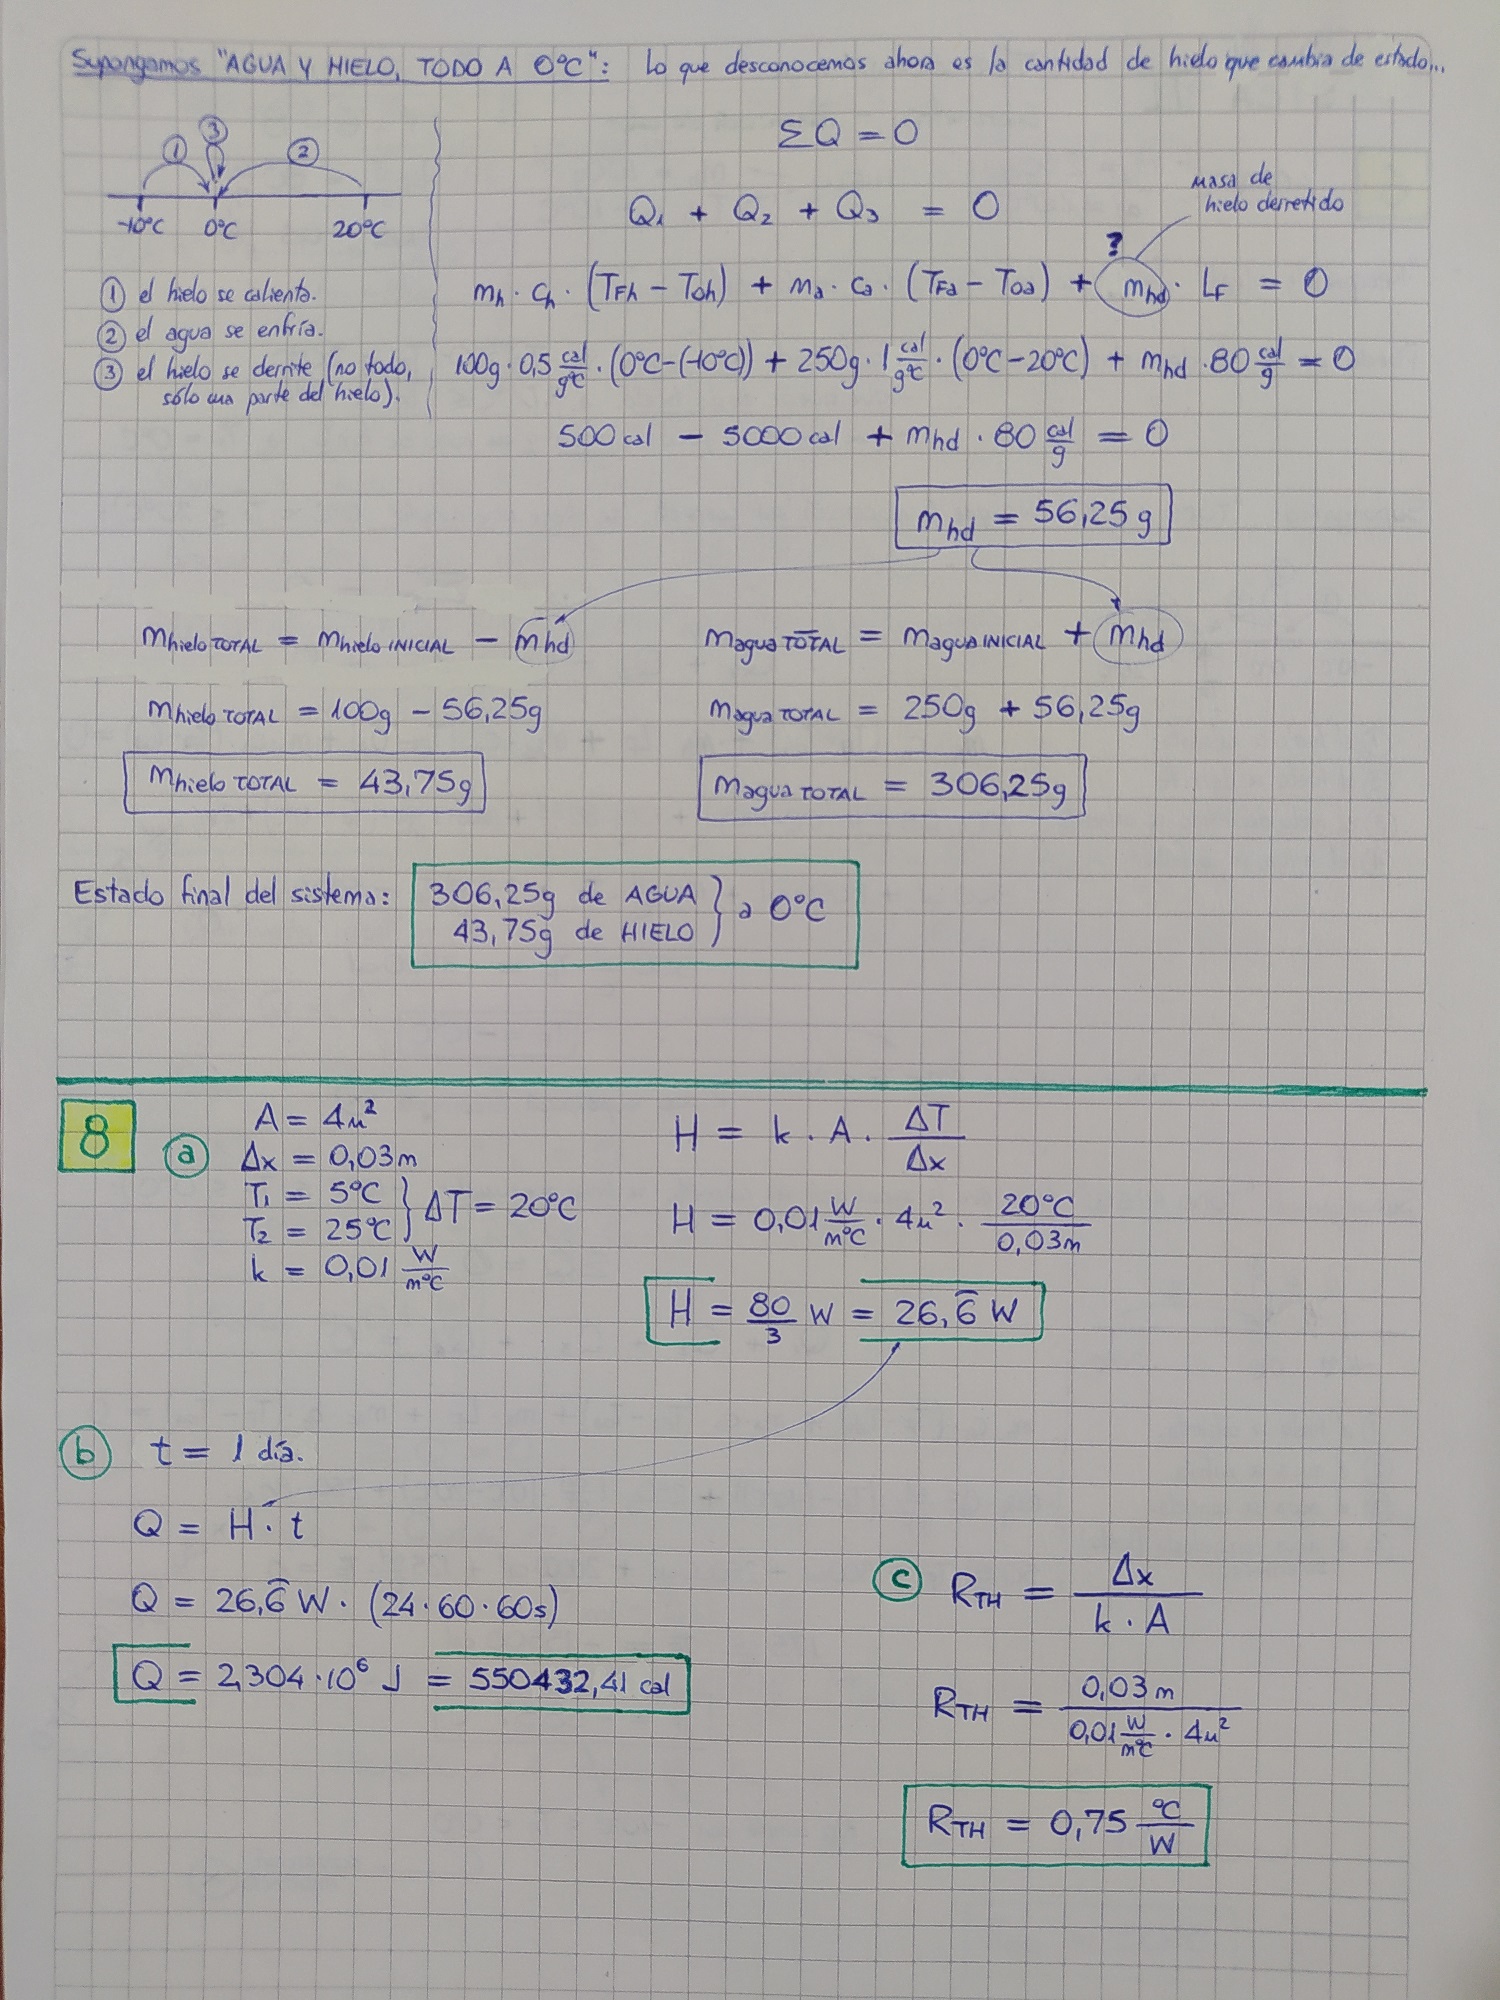 Supongamos "AGUA Y HIELO, TODO A 0°C": Lo que desconocemos ahora es la cantidad de hielo que cambia de estado...
① ③ ②
-10°C 0°C 20°C
① el hielo se calienta.
② el agua se enfría.
③ el hielo se derrite (no todo,
sólo una parte del hielo).
ΣQ = 0
Q₁ + Q₂ + Q₃ = 0
masa de
hielo derretido
?
mh · Ch · (TFh - T0h) + ma · Ca · (TFa - T0a) + mhd · LF = 0
100g · 0,5 cal/g°C · (0°C - (-10°C)) + 250g · 1 cal/g°C · (0°C - 20°C) + mhd · 80 cal/g = 0
500 cal - 5000 cal + mhd · 80 cal/g = 0
mhd = 56,25g
mhielo TOTAL = mhielo INICIAL - mhd
magua TOTAL = magua INICIAL + mhd
mhielo TOTAL = 100g - 56,25g
magua TOTAL = 250g + 56,25g
mhielo TOTAL = 43,75g
magua TOTAL = 306,25g
Estado final del sistema: 306,25g de AGUA
43,75g de HIELO } a 0°C
8
ⓐ A = 4m²
Δx = 0,03m
T₁ = 5°C
T₂ = 25°C } ΔT = 20°C
k = 0,01 W/m°C
H = k · A · ΔT/Δx
H = 0,01 W/m°C · 4m² · 20°C/0,03m
H = 80/3 W = 26,6̄ W
ⓑ t = 1 día.
Q = H · t
Q = 26,6̄ W · (24·60·60s)
Q = 2,304·10⁶ J = 550432,41 cal
ⓒ RTH = Δx/k · A
RTH = 0,03m/0,01 W/m°C · 4m²
RTH = 0,75 °C/W